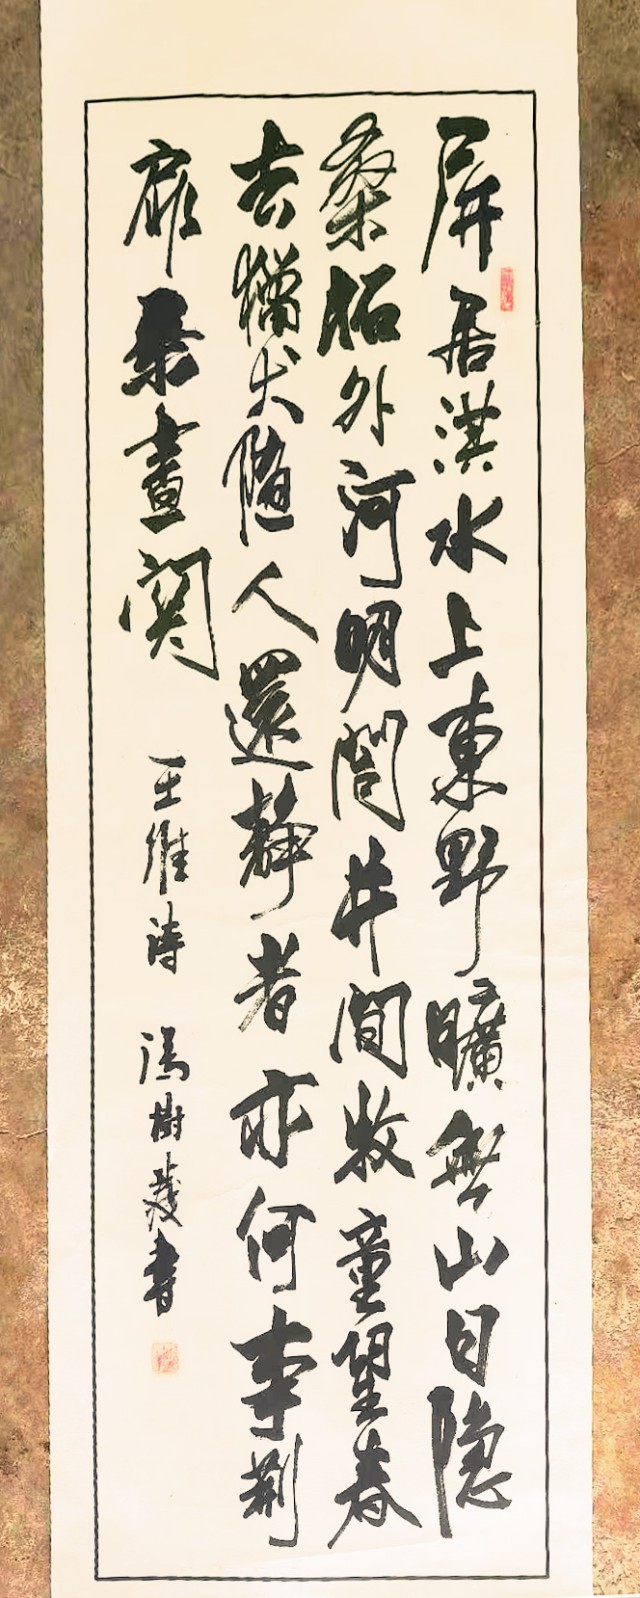 屏居淇水上東野曠無山日隐
桑柘外河明閭井間牧童望春
去獵犬隨人還静者亦何事荆
扉乘晝関
王維诗 馮樹 書